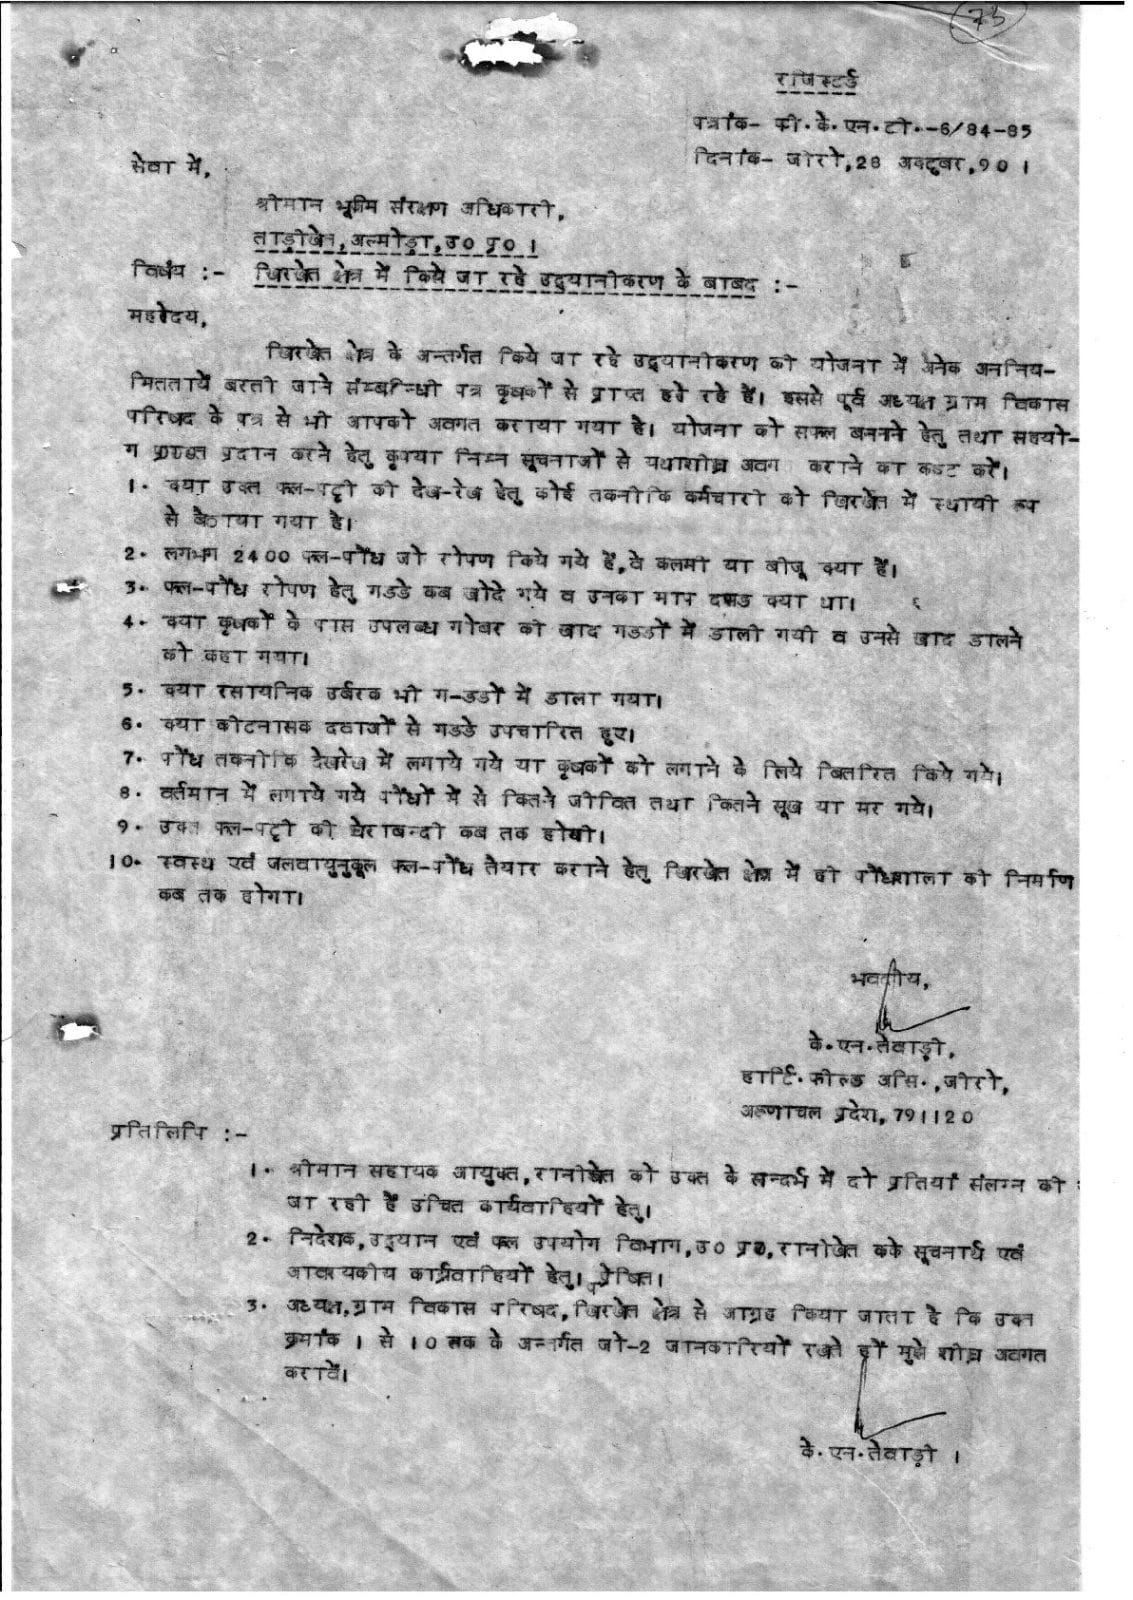 73
रजिस्टर्ड
पत्रांक- फी.के.एन.टी.-6/84-85
दिनांक- जीरो,28 अक्टूबर,90।
सेवा में,
श्रीमान भूमि संरक्षण अधिकारी,
ताड़ीखेत,अल्मोड़ा,उ0 प्र0।
विषय :- खिरखेत क्षेत्र में किये जा रहे उद्यानीकरण के बाबद :-
महोदय,
खिरखेत क्षेत्र के अन्तर्गत किये जा रहे उद्यानीकरण की योजना में अनेक अननिय-
मिततायें बरती जाने संम्बन्धि पत्र कृषकों से प्राप्त हो रहे हैं। इससे पूर्व अध्यक्ष ग्राम विकास
परिषद के पत्र से भी आपको अवगत कराया गया है। योजना को सफल बनाने हेतु तथा सहयो-
ग प्रदान करने हेतु कृपया निम्न सूचनाओं से यथाशीघ्र अवग कराने का कष्ट करें।
1. क्या उक्त फल-पट्टी की देख-रेख हेतु कोई तकनीकि कर्मचारी को खिरखेत में स्थायी रूप
से बैठाया गया है।
2. लगभग 2400 फल-पौंध जो रोपण किये गये हैं,वे कलमी या बीजू क्या हैं।
3. फल-पौंध रोपण हेतु गडडे कब खोदे गये व उनका माप दण्ड क्या था।
4. क्या कृषकों के पास उपलब्ध गोबर की खाद गडडों में डाली गयी व उनसे खाद डालने
को कहा गया।
5. क्या रसायनिक उर्बरक भी ग-डडों में डाला गया।
6. क्या कीटनासक दवाओं से गडडे उपचारित हुए।
7. पौंध तकनीकि देखरेख में लगाये गये या कृषकों को लगाने के लिये बितरित किये गये।
8. वर्तमान में लगाये गये पौंधों में से कितने जीवित तथा कितने सूख या मर गये।
9. उक्त फल-पट्टी की घेराबन्दी कब तक होगी।
10. स्वस्थ एवं जलवायुनुकूल फल-पौंध तैयार कराने हेतु खिरखेत क्षेत्र में ही पौंधशाला का निर्माण
कब तक होगा।
भवदीय,
के.एन.तेवाड़ी,
हार्टि.फील्ड असि.,जीरो,
अरूणाचल प्रदेश,791120
प्रतिलिपि :-
1. श्रीमान सहायक आयुक्त,रानीखेत को उक्त के सन्दर्भ में दो प्रतियां संलग्न की
जा रही हैं उचित कार्यवाहियों हेतु।
2. निदेशक,उद्यान एवं फल उपयोग विभाग,उ0 प्र0,रानीखेत कके सूचनार्थ एवं
आवश्यकीय कार्यवाहियों हेतु। प्रेषित।
3. अध्यक्ष,ग्राम विकास परिषद,खिरखेत क्षेत्र से आग्रह किया जाता है कि उक्त
क्रमांक 1 से 10 तक के अन्तर्गत जो-2 जानकारियों रखते हों मुझे शीघ्र अवगत
करावें।
के.एन.तेवाड़ी ।